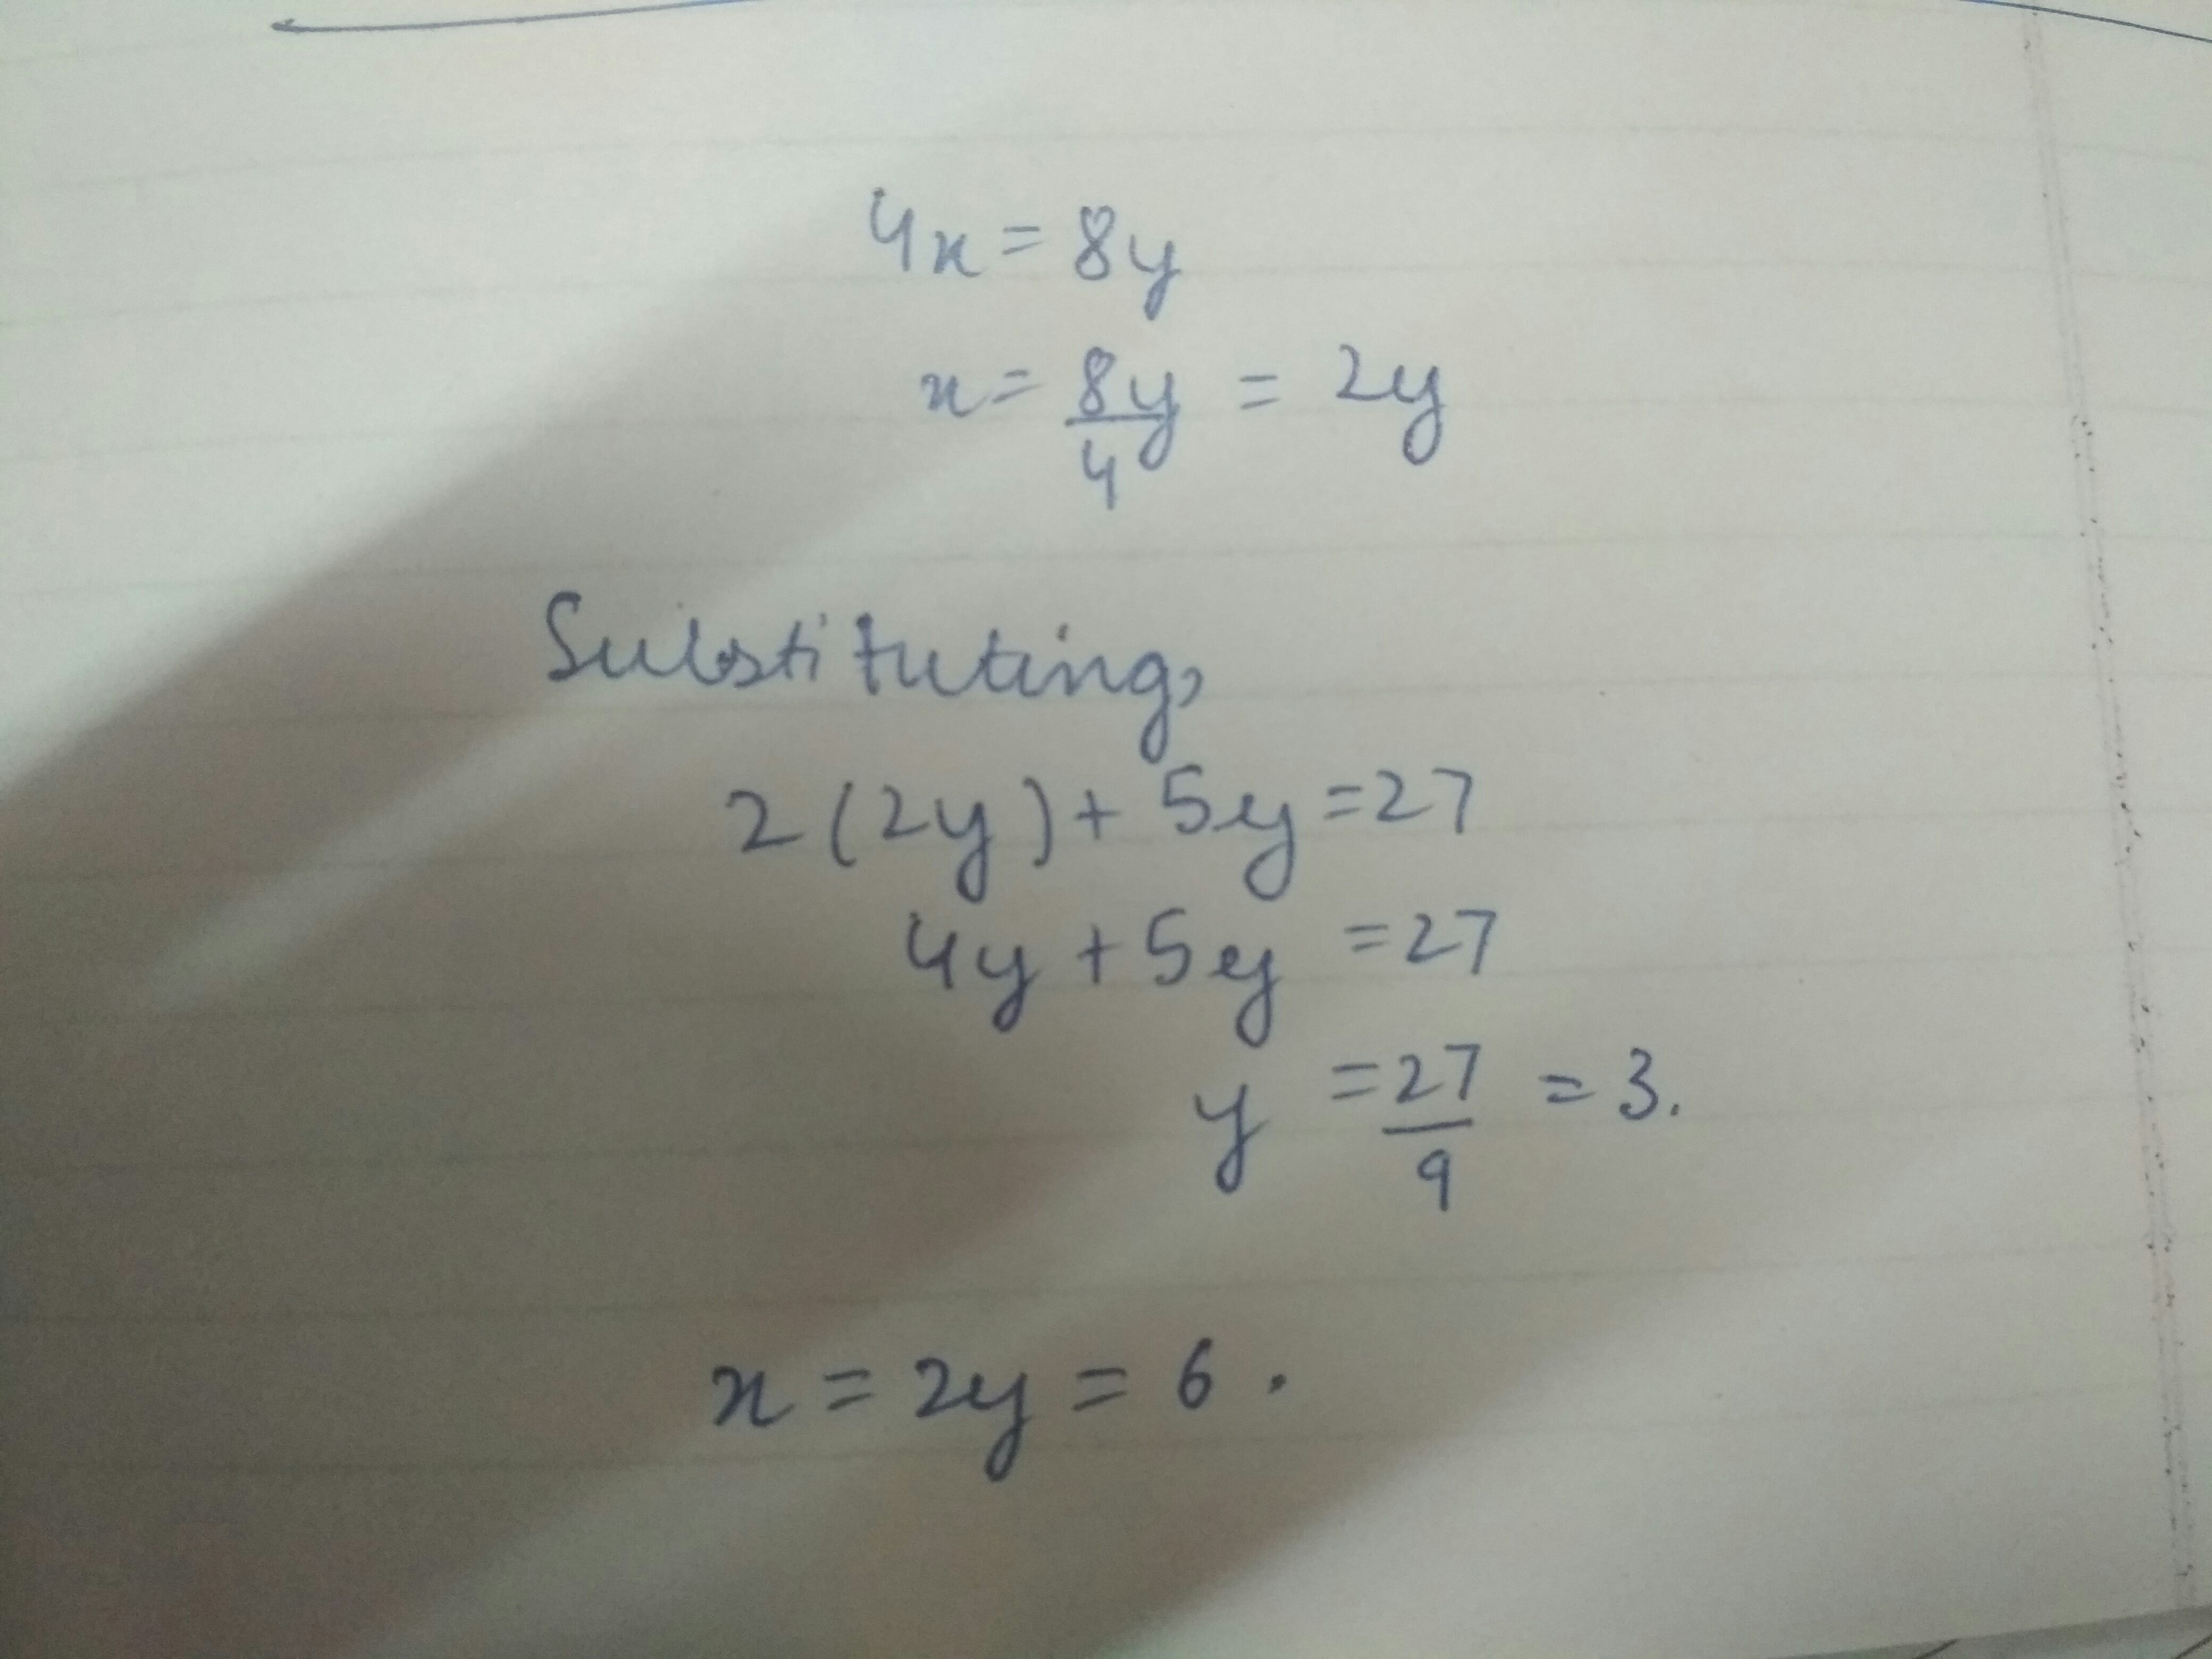 4x = 8y
x = 8y/4 = 2y
Substituting,
2(2y) + 5y = 27
4y + 5y = 27
y = 27/9 = 3.
x = 2y = 6.